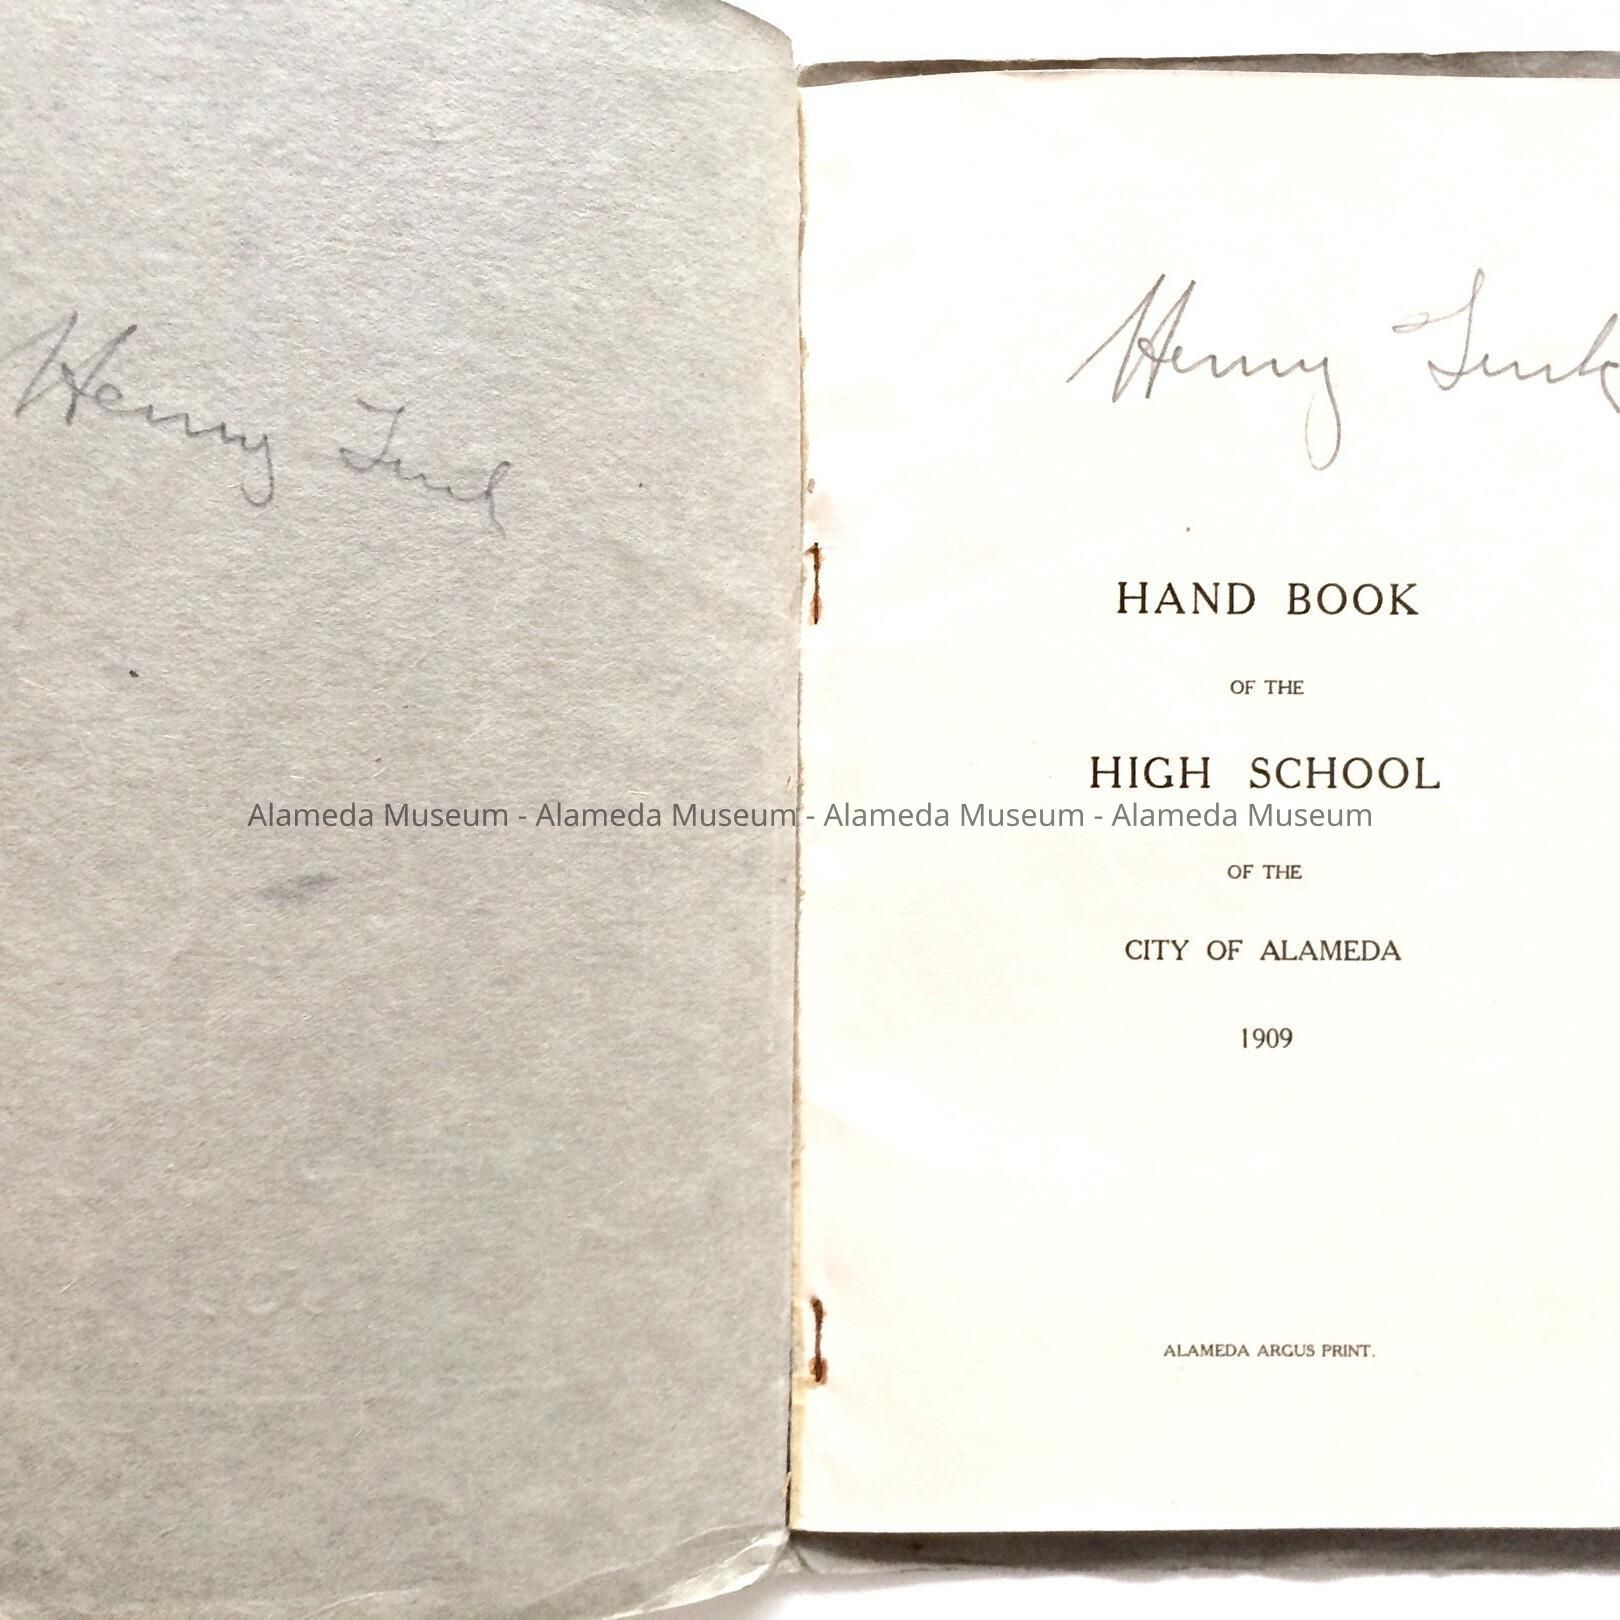 Henny
Henny
HAND BOOK
OF THE
HIGH SCHOOL
Alameda Museum - Alameda Museum - Alameda Museum - Alameda Museum
OF THE
CITY OF ALAMEDA
1909
ALAMEDA ARGUS PRINT.